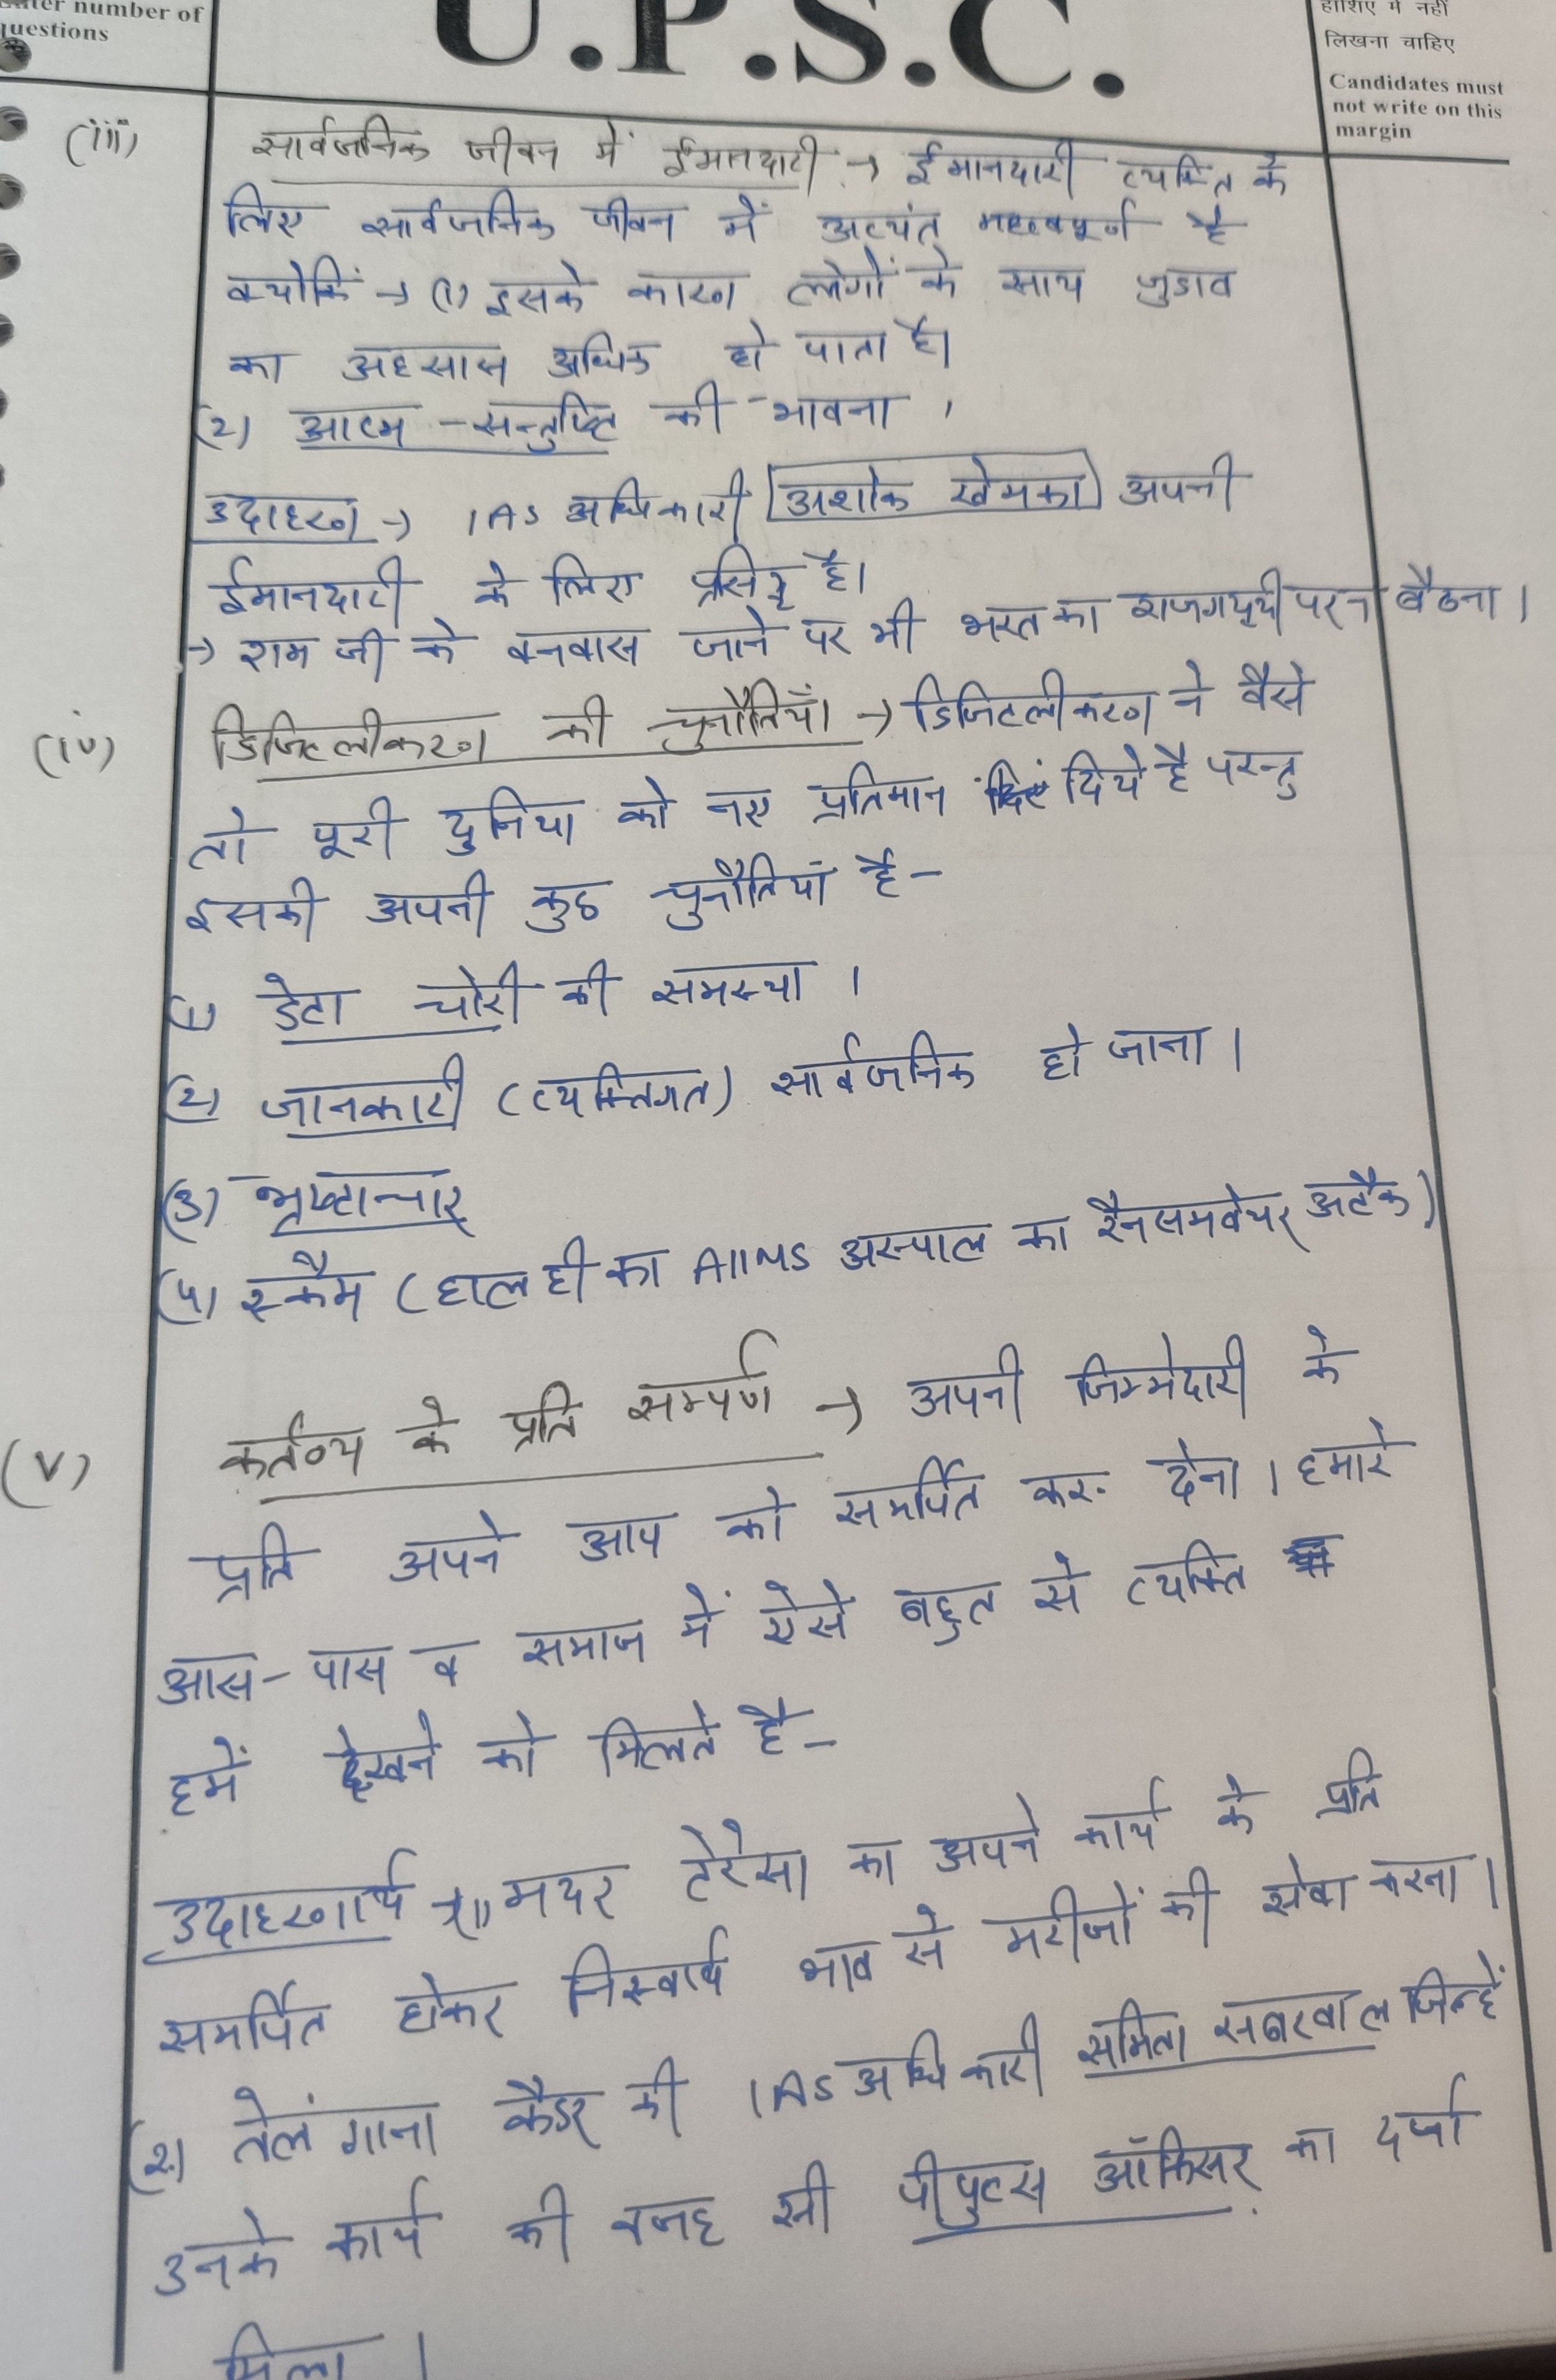 number of
questions
U.P.S.C.
हाशिए में नहीं
लिखना चाहिए
Candidates must
not write on this
margin
(iii) सार्वजनिक जीवन में ईमानदारी → ईमानदारी व्यक्ति के
लिए सार्वजनिक जीवन में अत्यंत महत्वपूर्ण है
क्योकिं → (1) इसके कारण लोगों के साथ जुडाव
का अहसास अधिक हो पाता है।
(2) आत्म-सन्तुष्टि की भावना ।
उदाहरण → IAS अधिकारी अशोक खेमका अपनी
ईमानदारी के लिए प्रसिद्ध है।
→ राम जी के वनवास जाने पर भी भरत का राजगद्दी पर न बैठना।
(iv) डिजिटलीकरण की चुनौतियाँ → डिजिटलीकरण ने वैसे
तो पूरी दुनिया को नए प्रतिमान दिये है परन्तु
इसकी अपनी कुछ चुनौतियां है-
(1) डेटा चोरी की समस्या ।
(2) जानकारी (व्यक्तिगत) सार्वजनिक हो जाना।
(3) भ्रष्टाचार
(4) स्कैम (हाल ही का AIIMS अस्पाल का रैनसमवेयर अटैक)
(v) कर्तव्य के प्रति सम्पर्ण → अपनी जिम्मेदारी के
प्रति अपने आप को समर्पित कर देना। हमारे
आस-पास व समाज में ऐसे बहुत से व्यक्ति
हमें देखने को मिलते है-
उदाहरणार्थ → (1) मदर टेरेसा का अपने कार्य के प्रति
समर्पित होकर निस्वार्थ भाव से मरीजों की सेवा करना।
(2) तेलंगाना कैडर की IAS अधिकारी समिता सबरवाल जिन्हें
उनके कार्य की वजह सी पीपुल्स ऑफिसर का दर्जा
मिला।